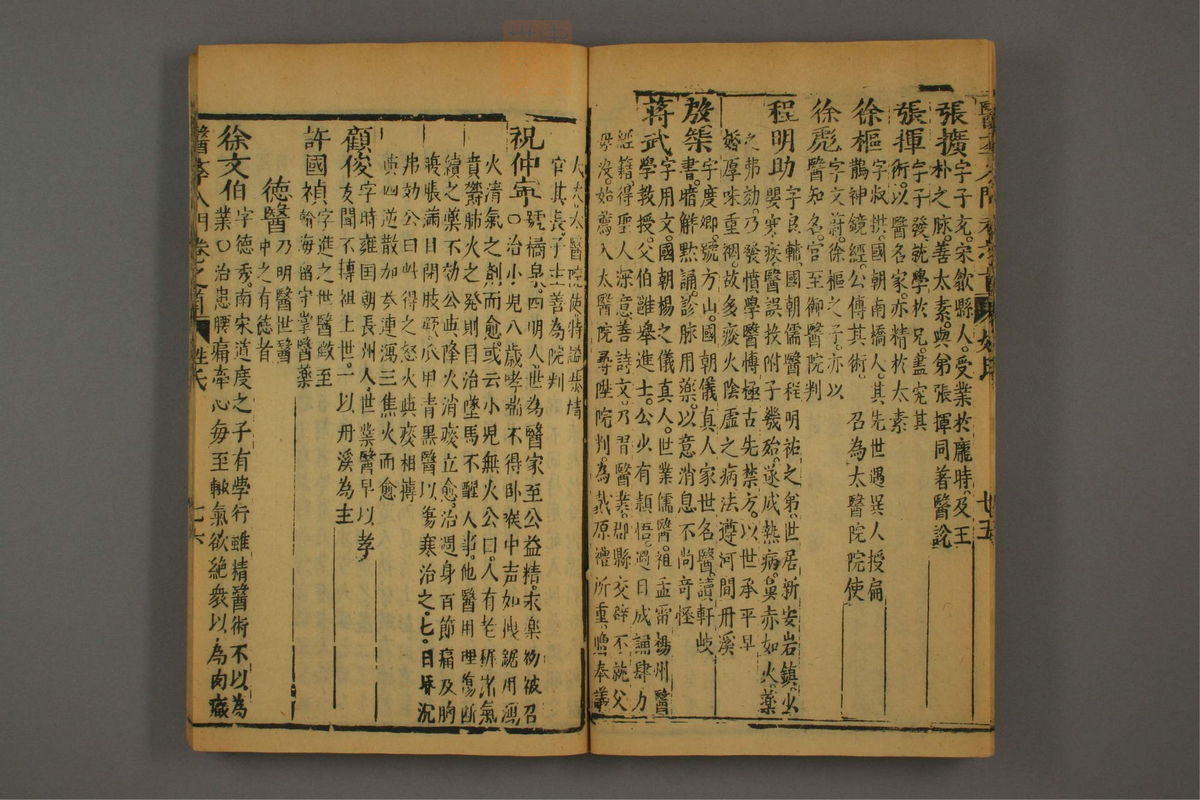 張擴字子充。宋歙縣人。受業於龐時。及王
朴之脉。善太素。與弟張揮同着醫說
張揮字子發就學於兄盡究其
術。以醫名家。亦精於太素
徐樞字叔拱國朝南橋人。其先世遇異人授扁
鵲神鏡經。公傳其術。召為太醫院院使
徐彪字文蔚。徐樞之子。亦以
醫知名。官至御醫院判
程明助字良輔國朝儒醫程明祐之弟。世居新安岩鎮。少
嬰寒疾醫誤投附子幾殆。遂成熱病。鼻赤如火。藥
之弗効。乃發憤學醫博極古先禁方。以世承平早
婚厚味重裯。故多痰火陰虛之病法遵河間丹溪
殷榘字度卿。號方山。國朝儀真人家世名醫讀軒岐
書。暗解默誦。診脉用藥。以意消息不尚奇怪
蔣武字用文。國朝楊之儀真人。世業儒醫。祖孟雷楊州醫
學教授。父伯雝舉進士。公少有頴悟。過日成誦肆力
經籍得聖人深意善詩文。乃習醫業。郡縣交辟不就父
母沒。始薦入太醫院尋陞院判。為戴原禮所重。贈奉議
大夫。太醫院使特謚恭靖
官其長子主善為院判
祝仲寧號橘泉。四明人。世為醫家至公益精。永樂初被召
〇治小兒八歲哮喘不得卧喉中声如拽鋸用瀉
火清氣之劑而愈。或云小兒無火公曰。人有老稚諸氣
賁鬱肺火之發則同治墜馬不醒人事。他醫用理傷斷
續之藥不効公與降火消痰立愈。治週身百節痛及胸
腹脹滿目閉肢厥。爪甲青黑醫以傷寒治之。七日昏沉
弗効公曰此得之怒火與痰相摶
與四逆散加芩連瀉三焦火而愈
顧俊字時雍国朝長州人世業醫早以孝
友聞不摶祖上世。一以丹溪為主
許國禎字進之世醫歛至
翰海留守掌醫藥
德醫乃明醫世醫
中之有德者
徐文伯字德秀。南宋道度之子有學行雖精醫術不以為
業〇治患腰痛牽心每至輙氣欲絶衆以為肉癥